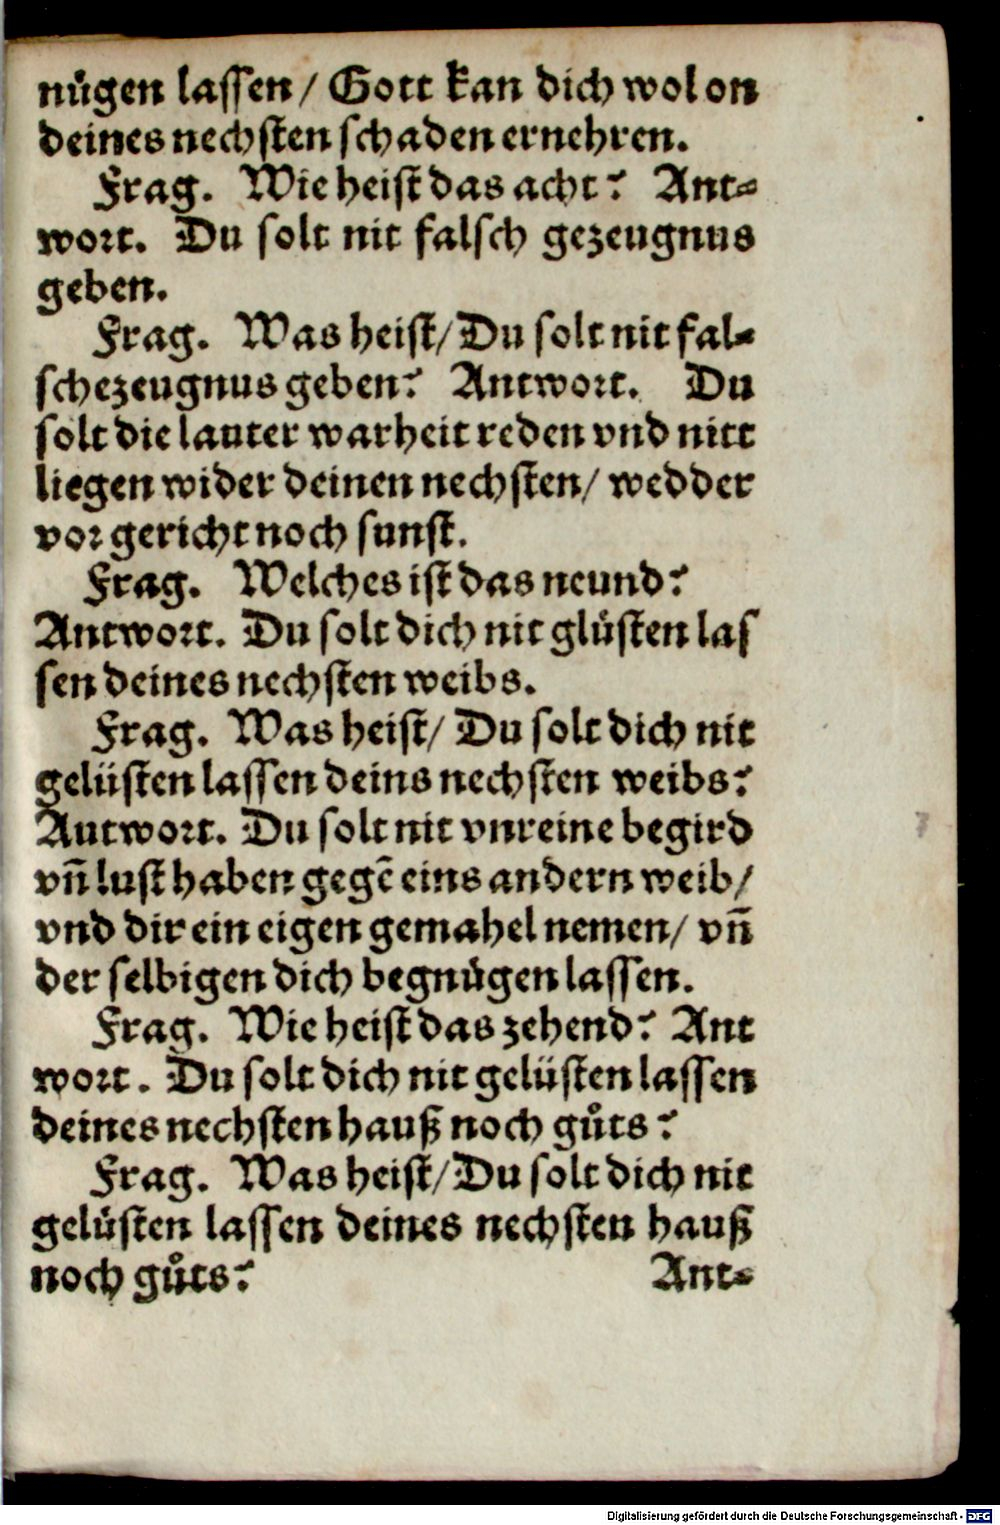 nuͤgen lassen/ Gott kan dich wol on
deines nechsten schaden ernehren.
Frag. Wie heist das acht? Ant⸗
wort. Du solt nit falsch gezeugnus
geben.
Frag. Was heist/ Du solt nit fal⸗
schezeugnus geben? Antwort. Du
solt die lauter warheit reden vnd nitt
liegen wider deinen nechsten/ wedder
vor gericht noch sunst.
Frag. Welches ist das neund?
Antwort. Du solt dich nit gluͤsten las
sen deines nechsten weibs.
Frag. Was heist/ Du solt dich nit
geluͤsten lassen deins nechsten weibs?
Autwort. Du solt nit vnreine begird
vn̄ lust haben gegē eins andern weib/
vnd dir ein eigen gemahel nemen/ vn̄
der selbigen dich begnuͤgen lassen.
Frag. Wie heist das zehend? Ant
wort. Du solt dich nit geluͤsten lassen
deines nechsten hauß noch guͦts?
Frag. Was heist/ Du solt dich nit
geluͤsten lassen deines nechsten hauß
noch guͦts? Ant⸗
Digitalisierung gefördert durch die Deutsche Forschungsgemeinschaft - DFG